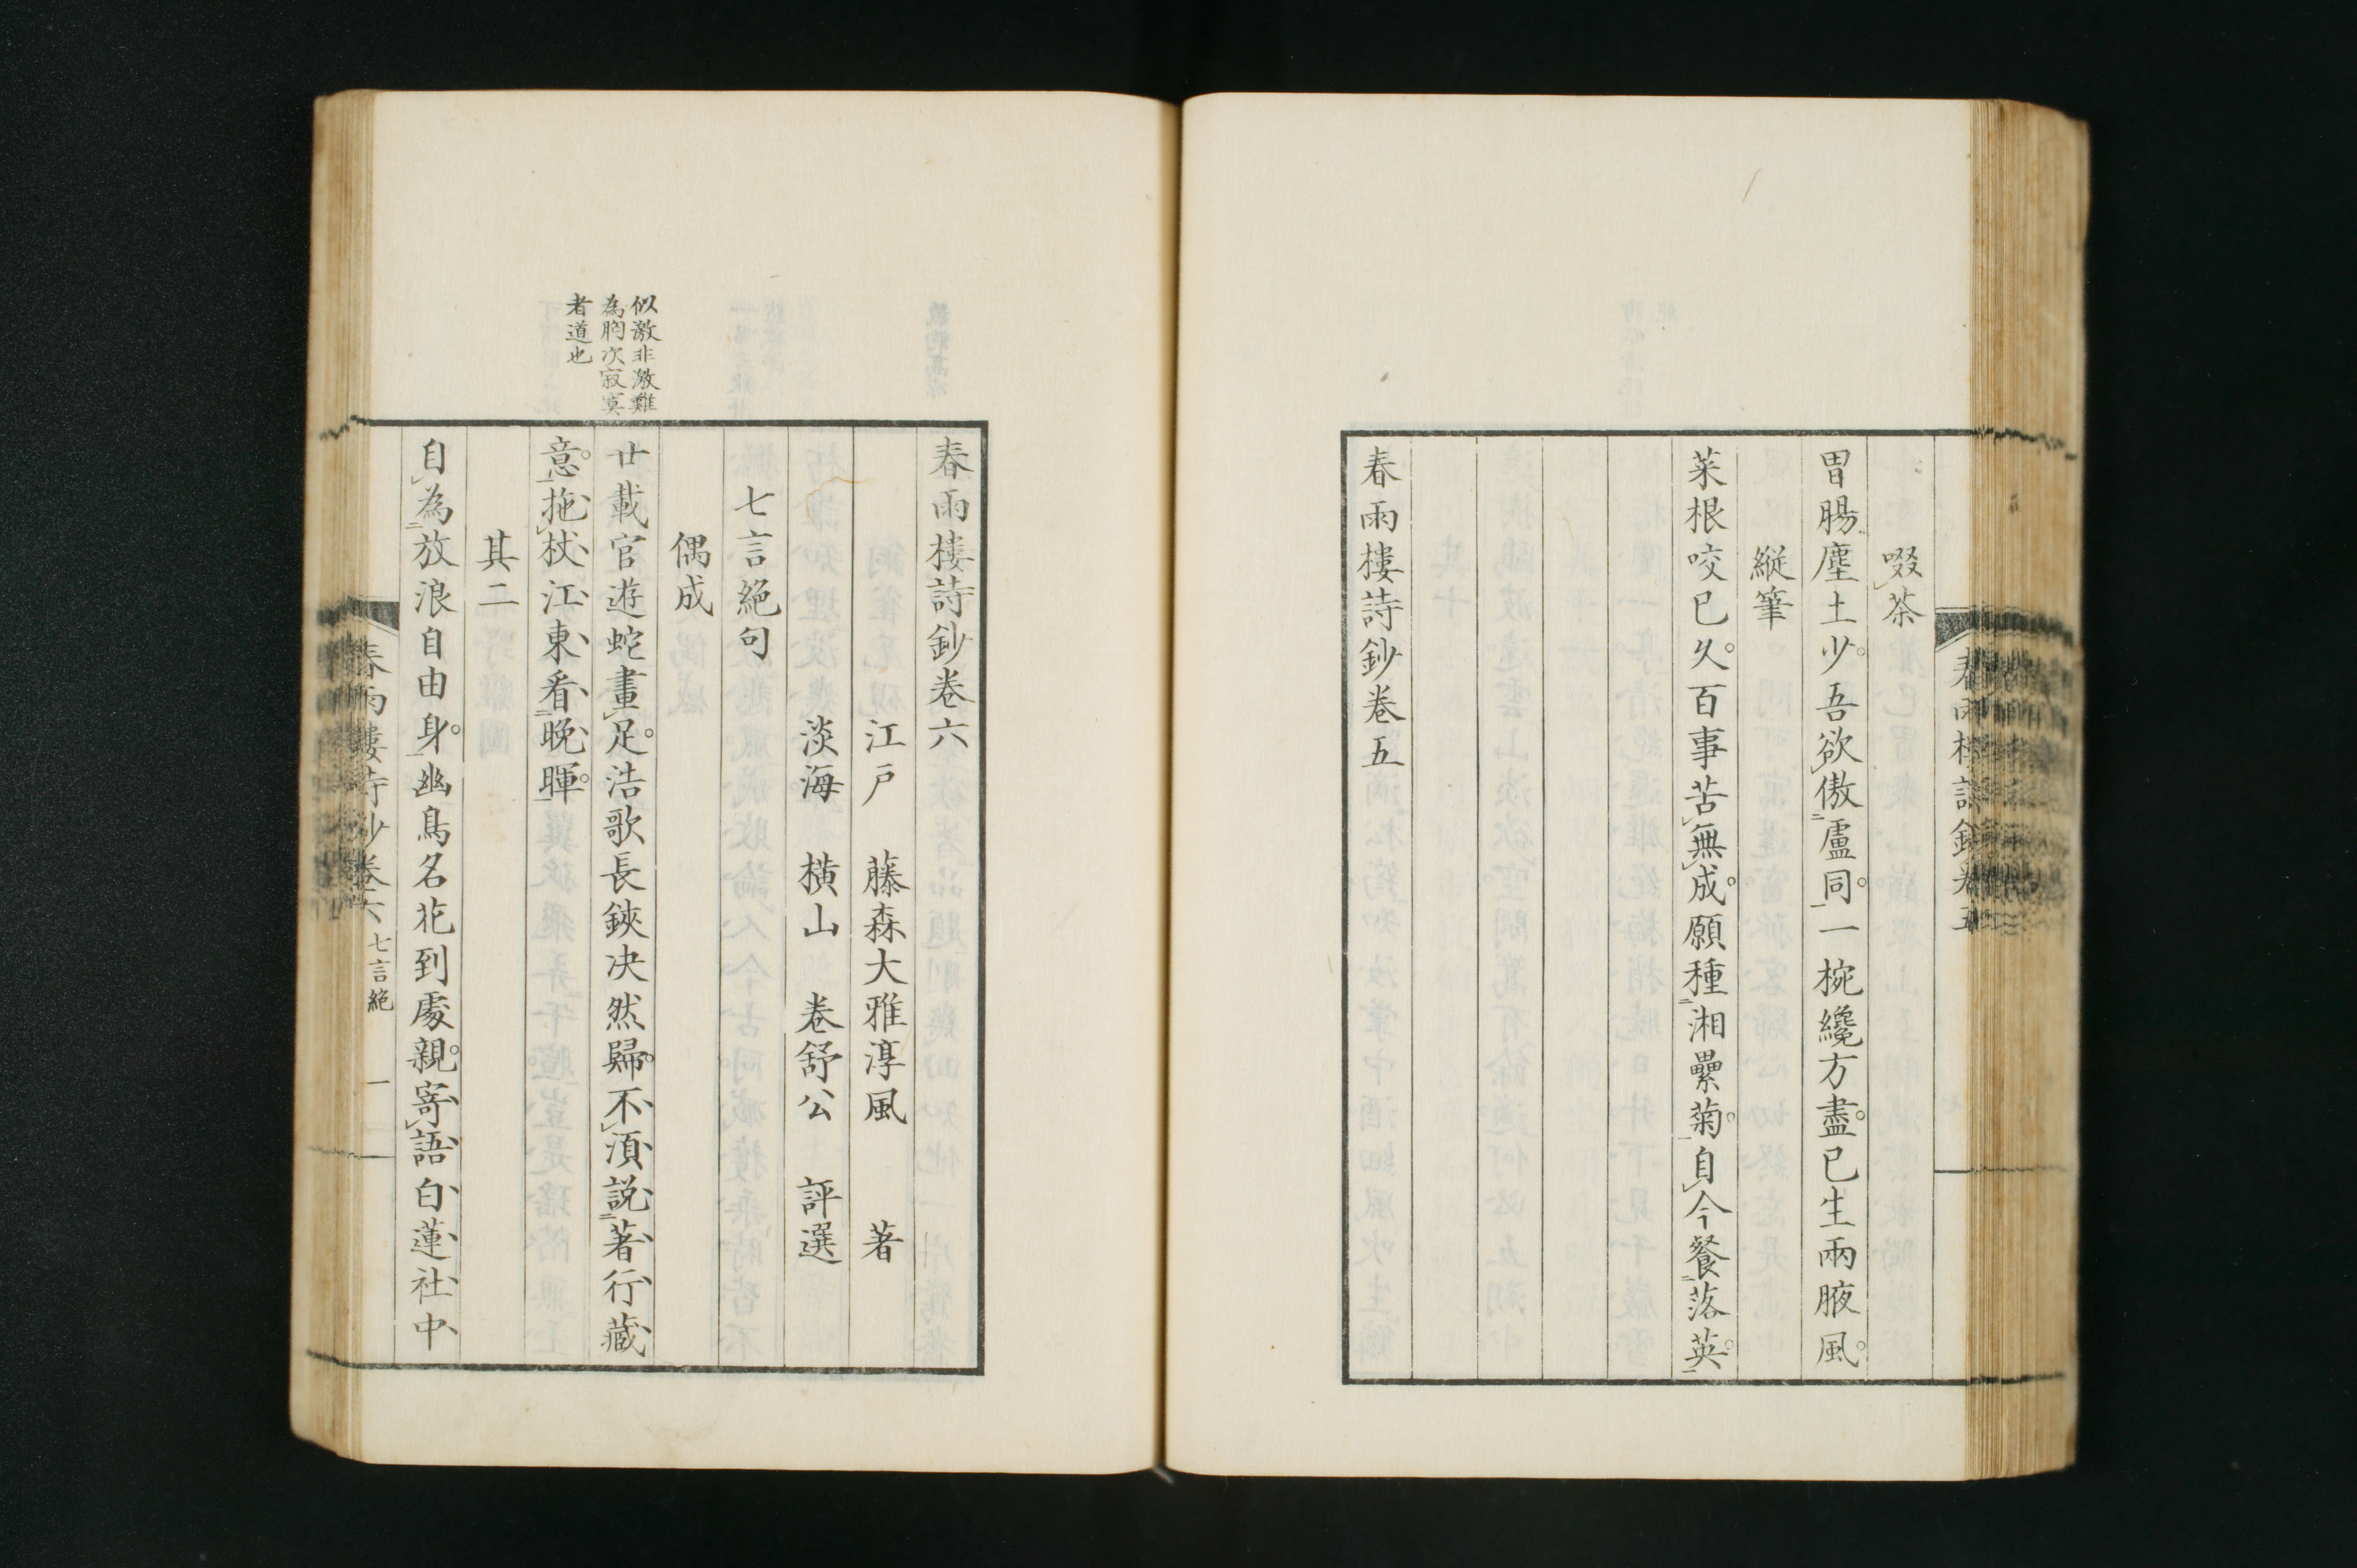 啜茶
胃腸塵土少吾欲傲盧同一椀纔方盡已生兩腋風
縱筆
菜根咬已久百事苦無成願種湘纍菊自今餐落英
春雨樓詩鈔卷五
春雨樓詩鈔卷五
春雨樓詩鈔卷六
江戶　藤森大雅淳風　著
淡海　横山　卷舒公　評選
七言絶句
偶成
似激非激難
為胸次寂寞
者道也
廿載官遊蛇畫足浩歌長鋏決然歸不須説著行藏
意拖杖江東看晚暉
其二
自為放浪自由身幽鳥名花到處親寄語白蓮社中
春雨樓詩鈔卷六　七言絶　一